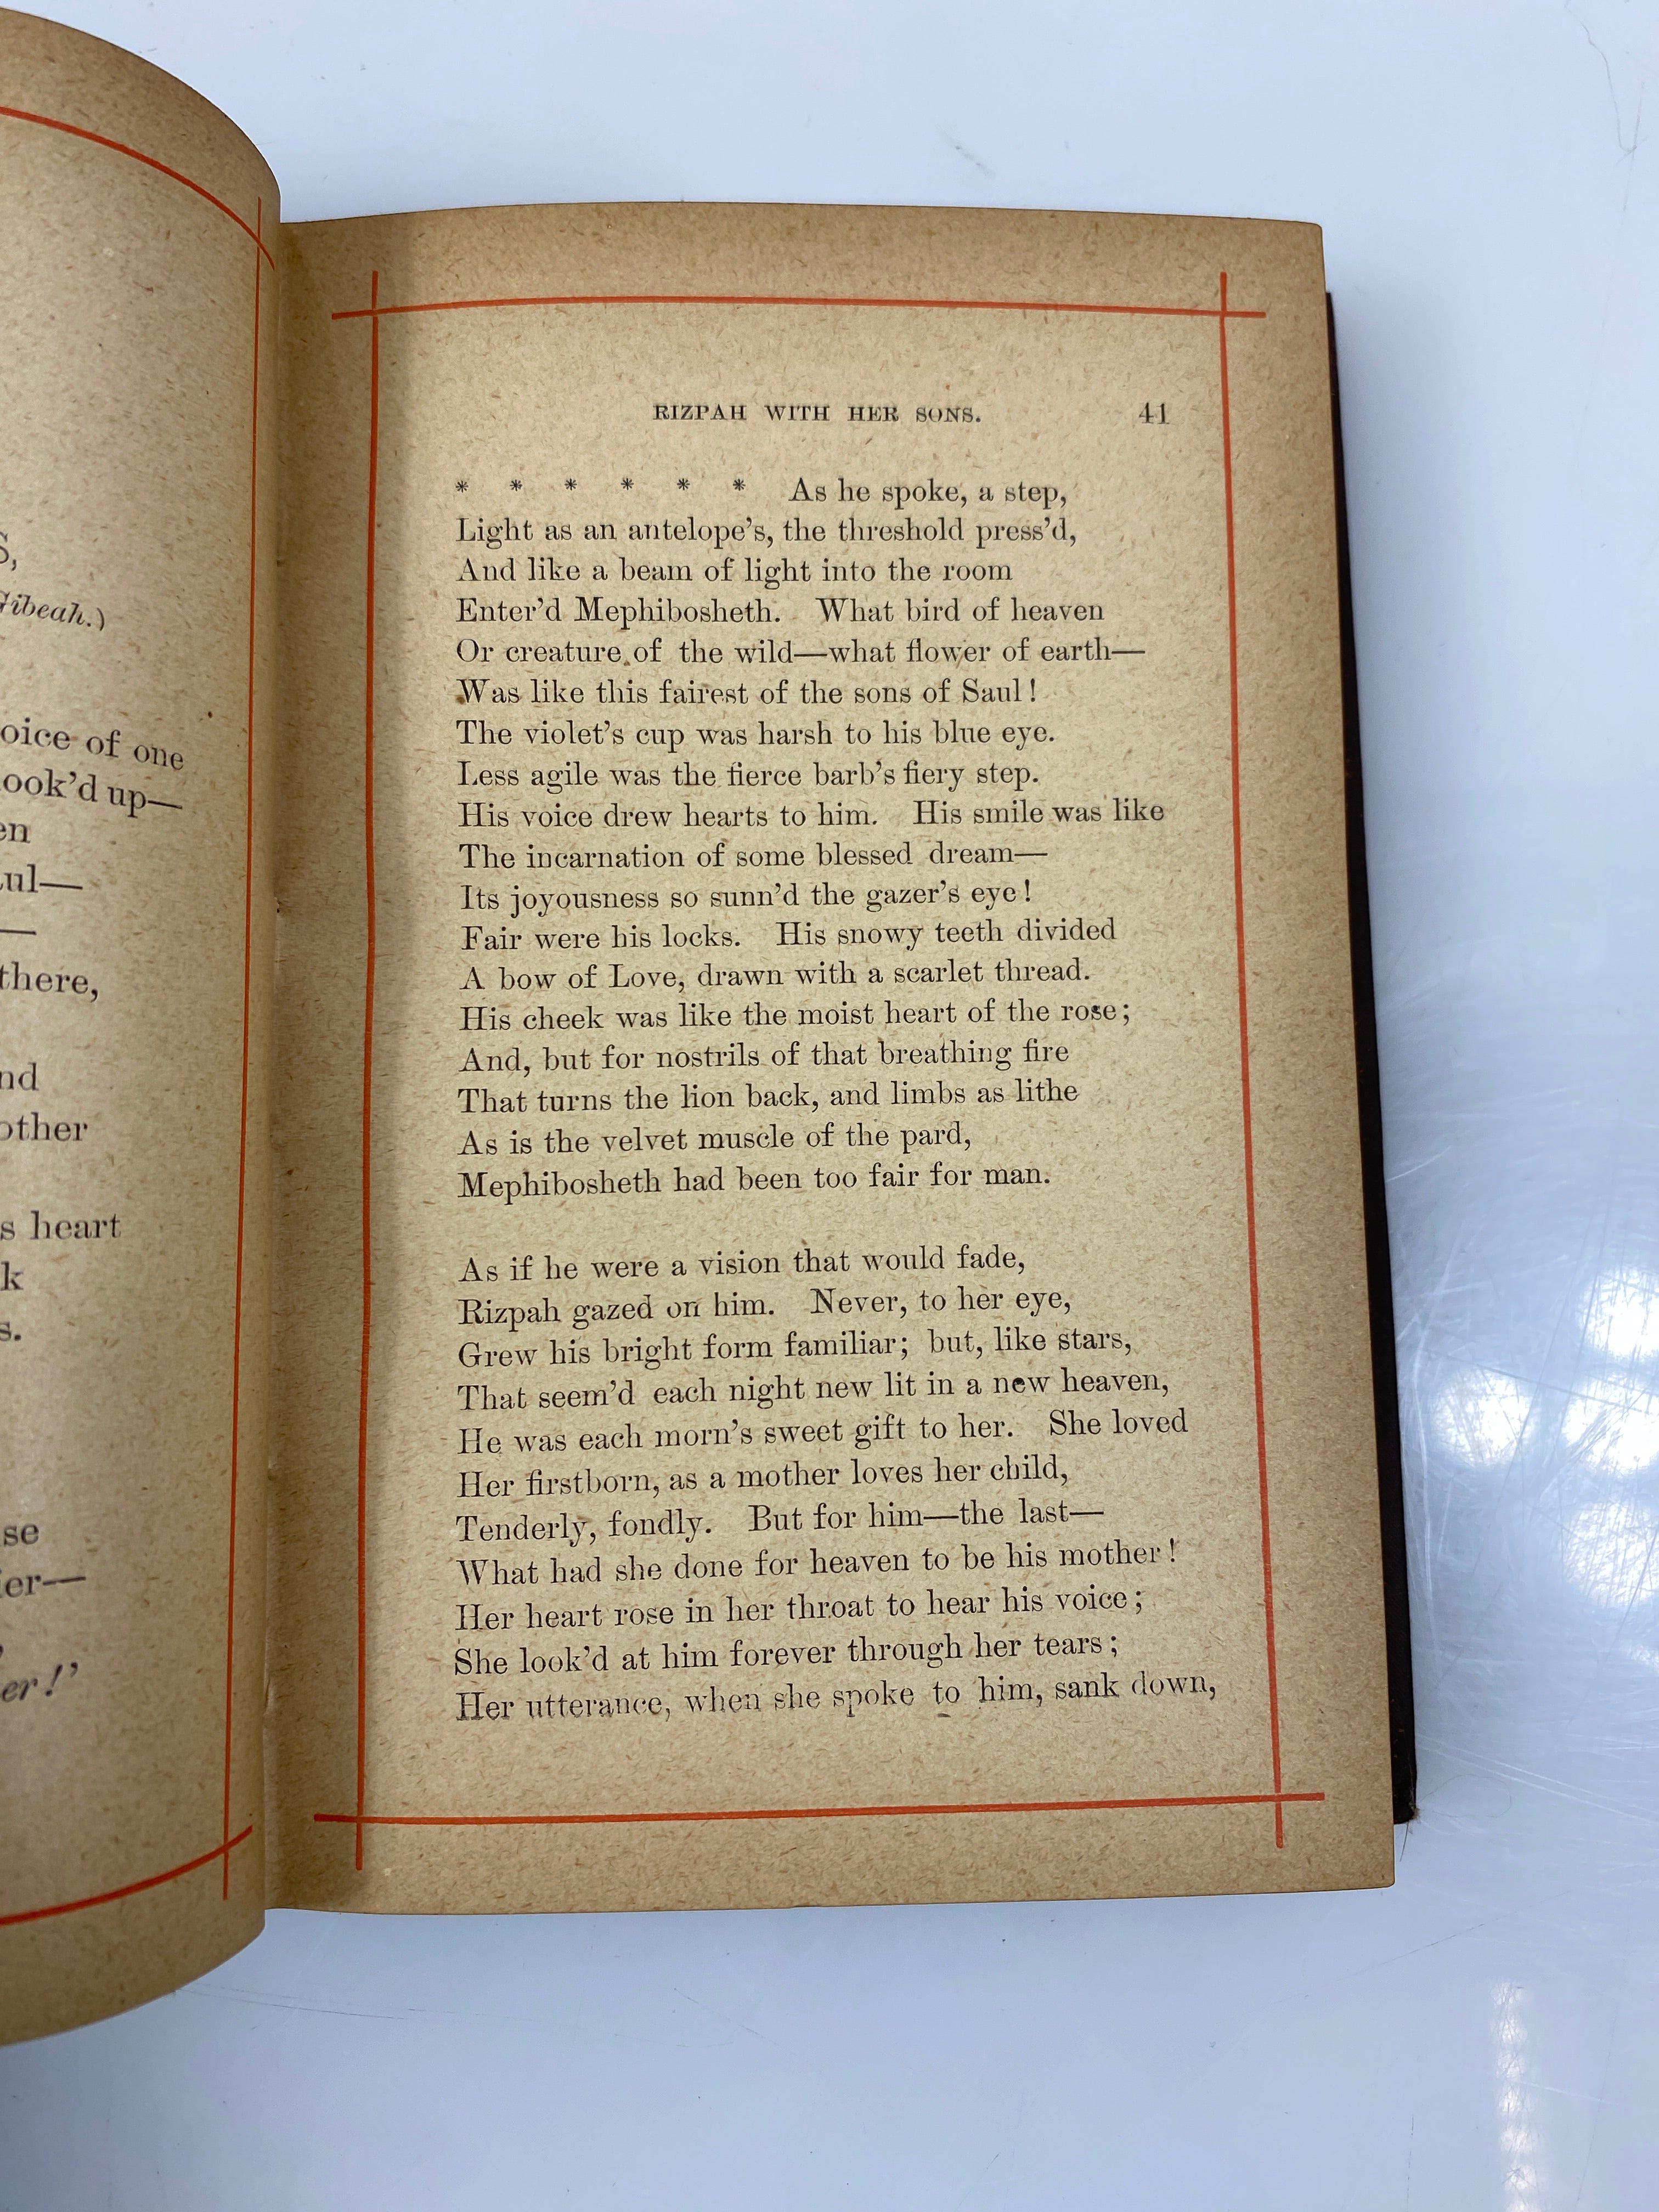 S,
Gibeah.)
oice of one
ook'd up—
en
ul—
—
there,
nd
other
s heart
k
s.
se
er—
er!'
RIZPAH WITH HER SONS. 41
* * * * * * As he spoke, a step,
Light as an antelope's, the threshold press'd,
And like a beam of light into the room
Enter'd Mephibosheth. What bird of heaven
Or creature of the wild—what flower of earth—
Was like this fairest of the sons of Saul!
The violet's cup was harsh to his blue eye.
Less agile was the fierce barb's fiery step.
His voice drew hearts to him. His smile was like
The incarnation of some blessed dream—
Its joyousness so sunn'd the gazer's eye!
Fair were his locks. His snowy teeth divided
A bow of Love, drawn with a scarlet thread.
His cheek was like the moist heart of the rose;
And, but for nostrils of that breathing fire
That turns the lion back, and limbs as lithe
As is the velvet muscle of the pard,
Mephibosheth had been too fair for man.
As if he were a vision that would fade,
Rizpah gazed on him. Never, to her eye,
Grew his bright form familiar; but, like stars,
That seem'd each night new lit in a new heaven,
He was each morn's sweet gift to her. She loved
Her firstborn, as a mother loves her child,
Tenderly, fondly. But for him—the last—
What had she done for heaven to be his mother!
Her heart rose in her throat to hear his voice;
She look'd at him forever through her tears;
Her utterance, when she spoke to him, sank down,